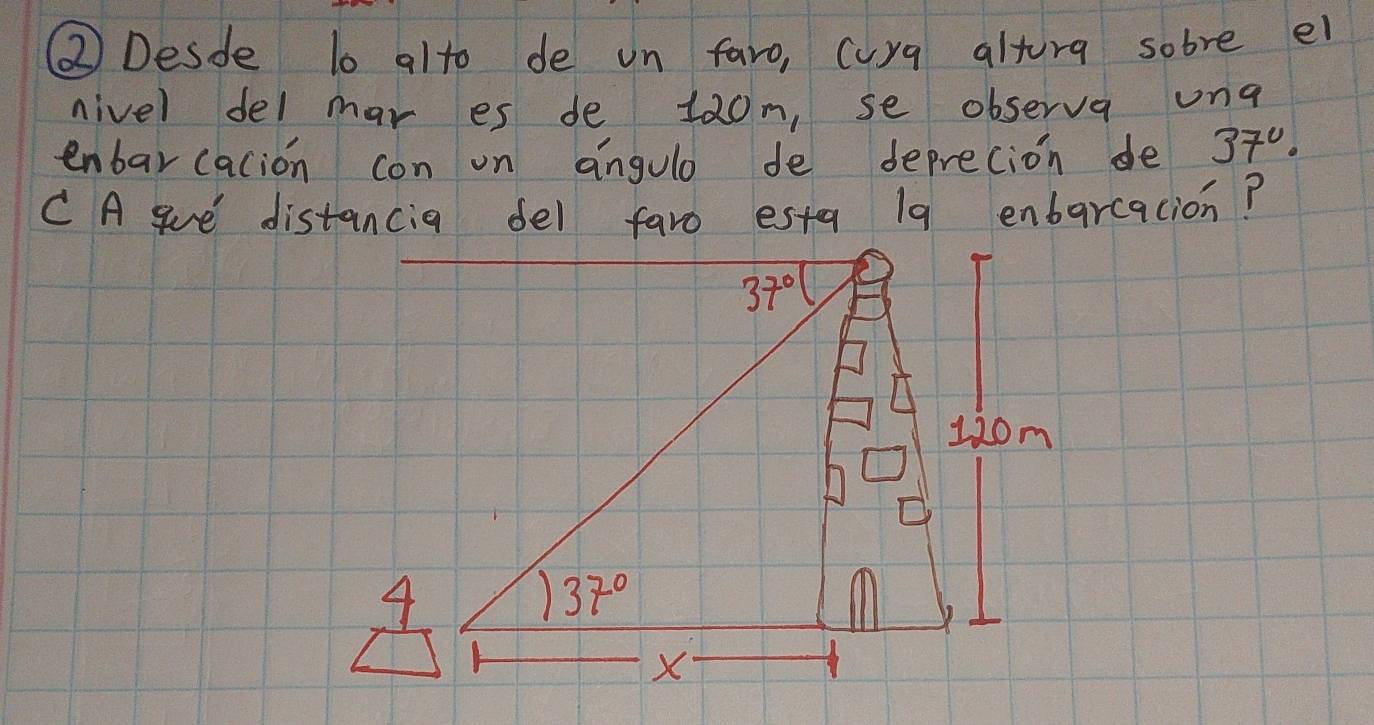 ② Desde lo alto de un faro, cuya altura sobre el
nivel del mar es de 120m, se observa una
enbarcación con un ángulo de depreción de 37°.
¿ A qué distancia del faro esta la enbarcación?
37°
120m
37°
x